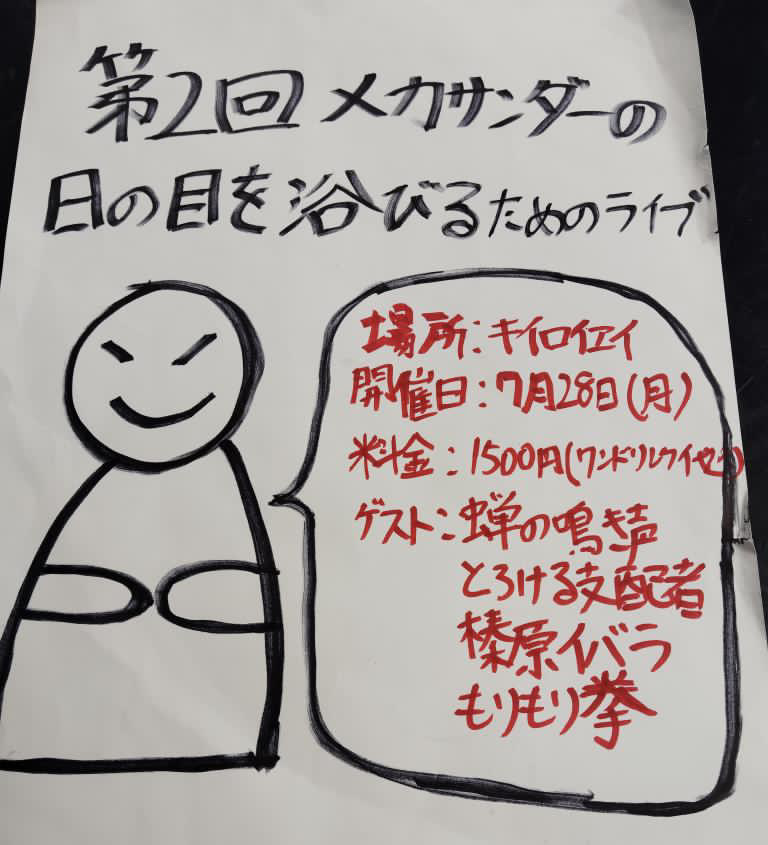 第2回メカサンダーの
日の目を浴びるためのライブ
場所:キイロイエイ
開催日:7月28日(月)
料金:1500円(ワンドリルクイやじ)
ゲスト:蝉の鳴き声
とろける支配者
榛原イバラ
もりもり拳